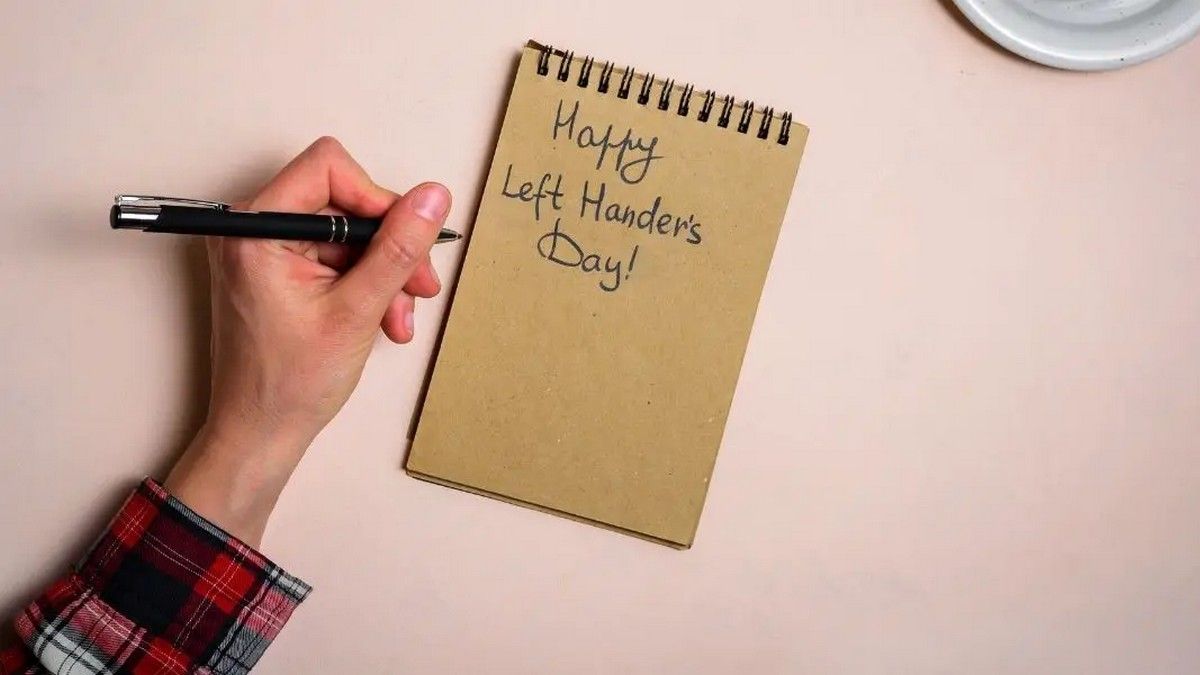 Happy
Left Hander's
Day!